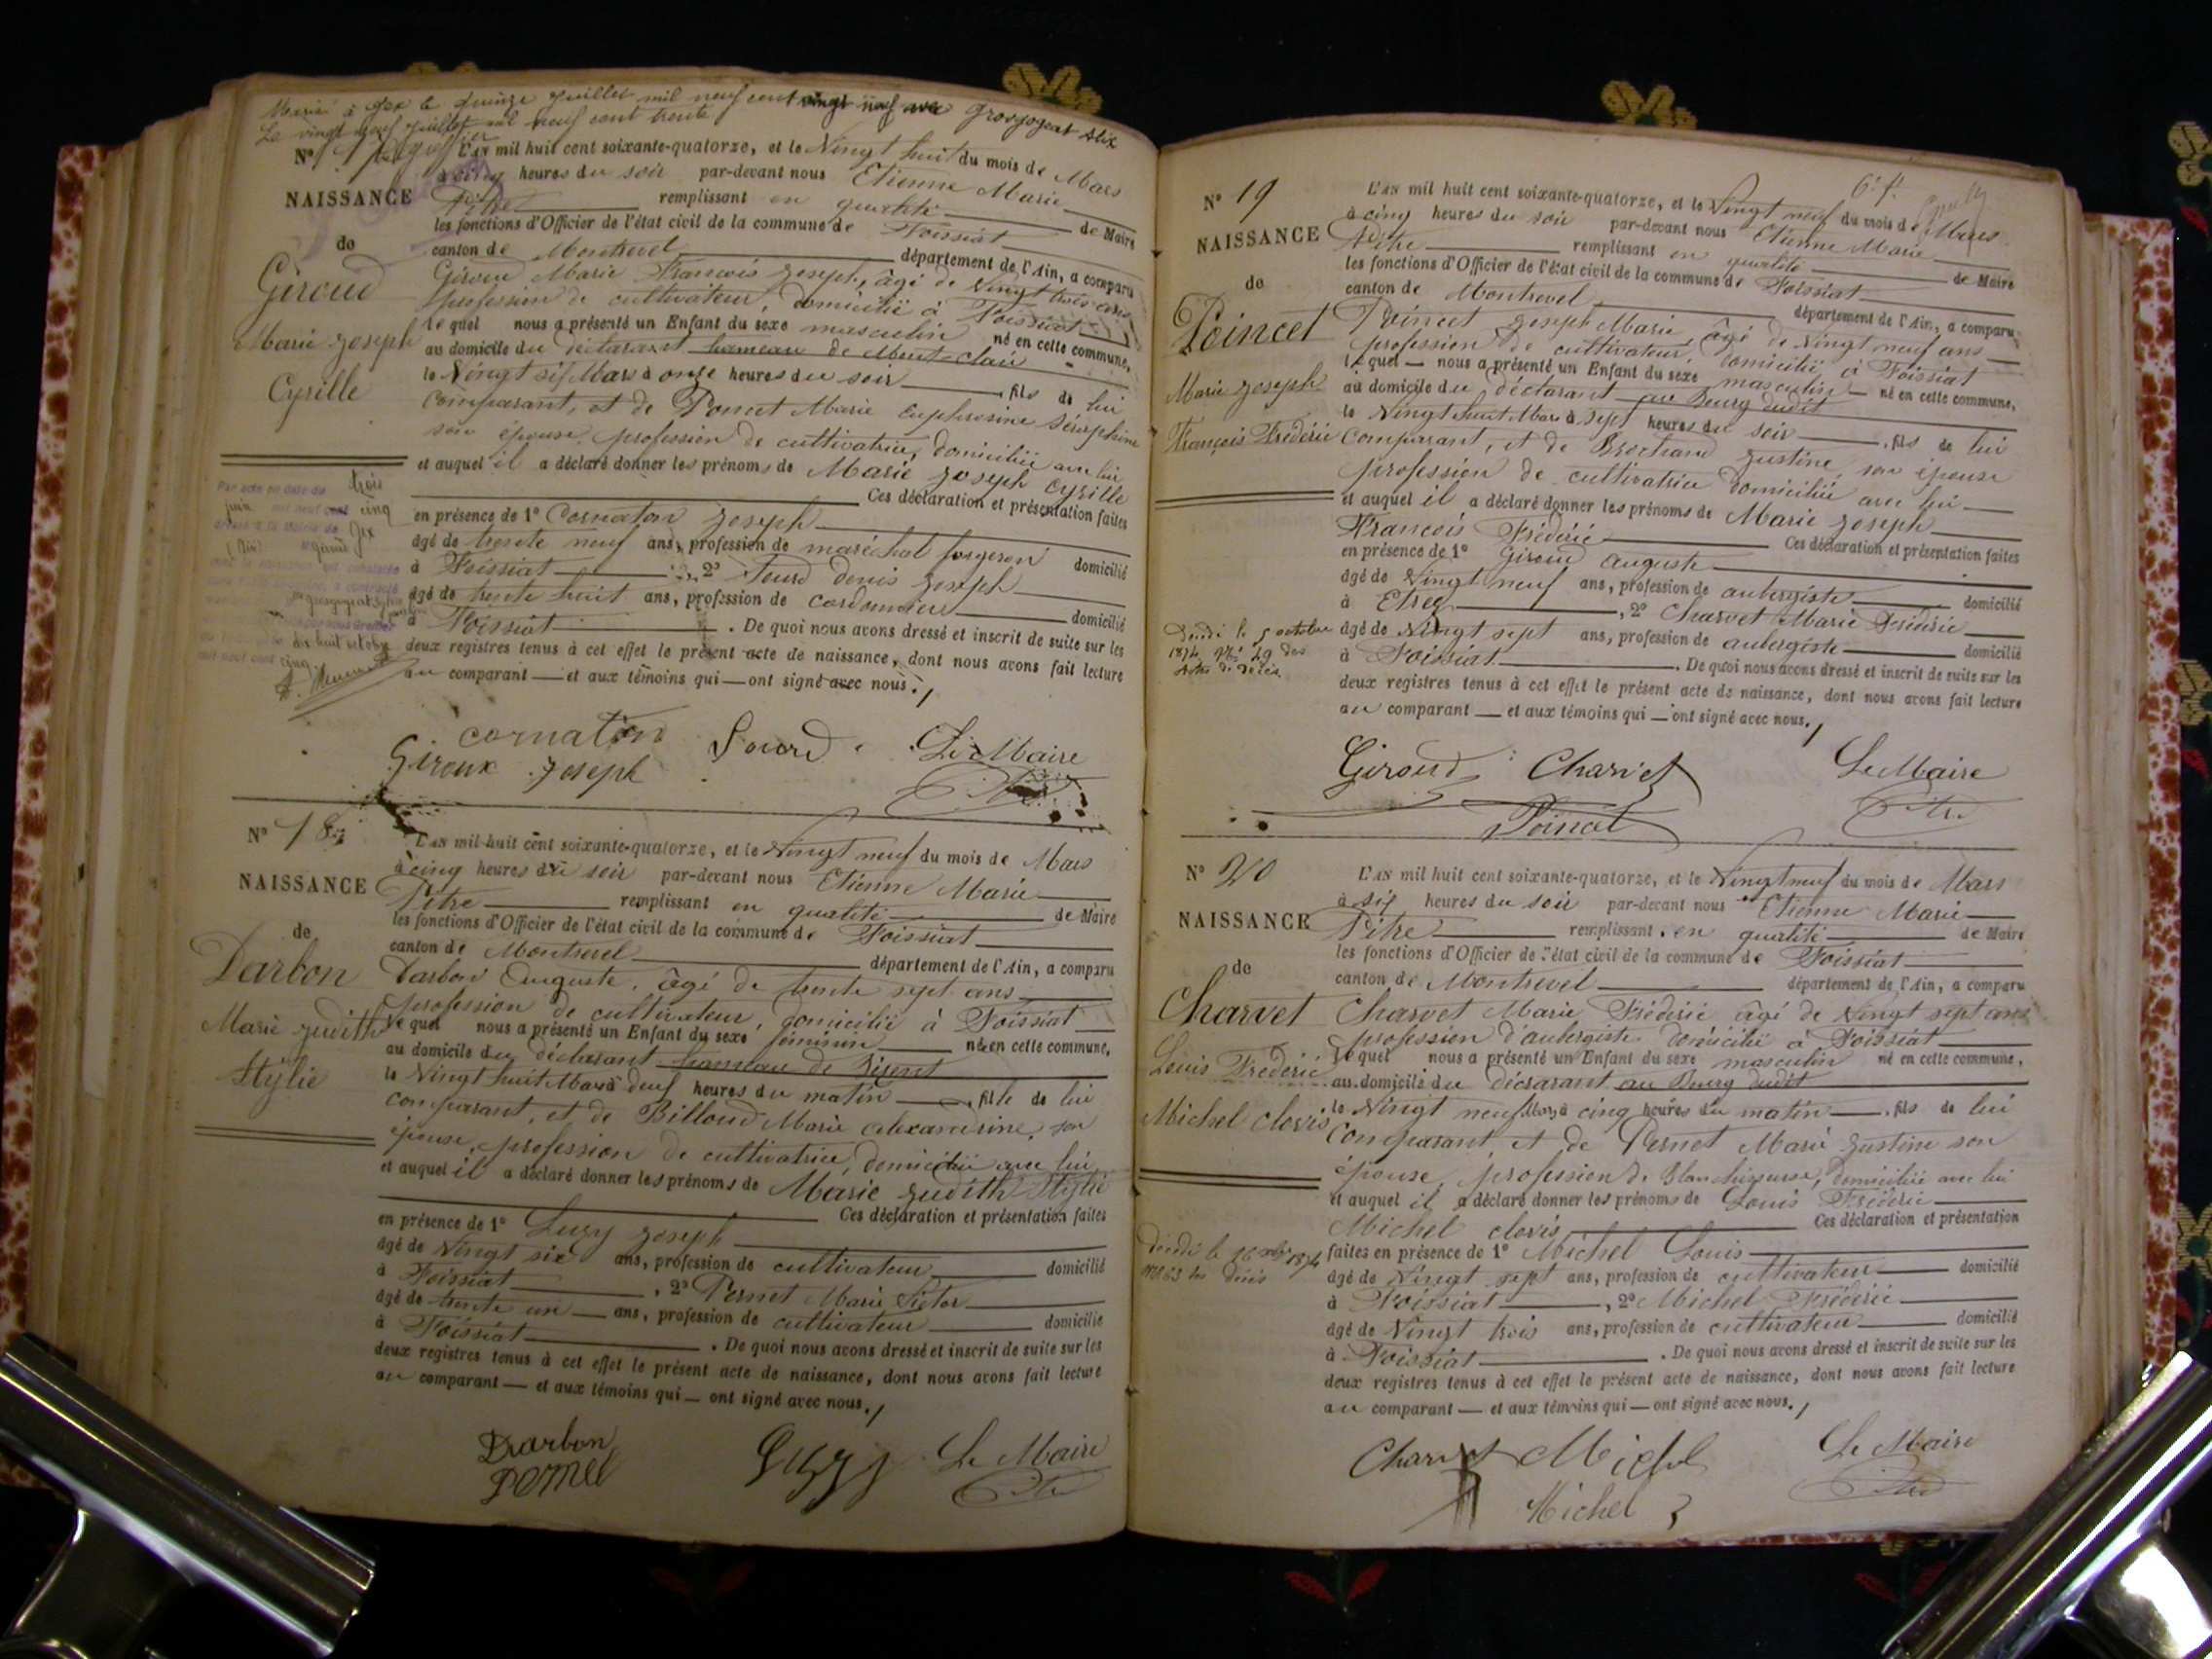 Marié à Gex le quinze juillet mil neuf cent vingt neuf avec Grosjogeat Alix
Le vingt neuf juillet mil neuf cent trente
N° 17
L'AN mil huit cent soixante-quatorze, et le Vingt huit du mois de Mars
à cinq heures du soir par-devant nous Etienne Marie
NAISSANCE
Pitre remplissant en qualité de Maire
les fonctions d'Officier de l'état civil de la commune de Foissiat
de
canton de Montrevel département de l'Ain, a comparu
Giroud
Giroud Marie François Joseph, âgé de Vingt trois ans
profession de cultivateur, domicilié à Foissiat
Marie Joseph
Le quel nous a présenté un Enfant du sexe masculin né en cette commune,
au domicile du déclarant hameau de Mont-clair
Cyrille
le Vingt six Mars à onze heures du soir fils de lui
comparant, et de Poncet Marie Euphrosine Séraphine
son épouse, profession de cultivatrice, domiciliée avec lui
et auquel il a déclaré donner les prénoms de Marie Joseph Cyrille
Ces déclaration et présentation faites
Par acte en date du trois
juin mil neuf cent cinq
Gex
(Ain)
dix huit octobre
mil neuf cent cinq
en présence de 1° Cornaton Joseph
âgé de trente neuf ans, profession de maréchal forgeron domicilié
à Foissiat, 2° Feurd Denis Joseph
âgé de trente huit ans, profession de cordonnier domicilié
à Foissiat. De quoi nous avons dressé et inscrit de suite sur les
deux registres tenus à cet effet le présent acte de naissance, dont nous avons fait lecture
au comparant — et aux témoins qui — ont signé avec nous.
cornaton Le Maire
Giroux Joseph
N° 18
L'AN mil huit cent soixante-quatorze, et le Vingt neuf du mois de Mars
à cinq heures du soir par-devant nous Etienne Marie
NAISSANCE
Pitre remplissant en qualité de Maire
les fonctions d'Officier de l'état civil de la commune de Foissiat
de
canton de Montrevel département de l'Ain, a comparu
Darbon
Darbon Auguste, âgé de trente sept ans
profession de cultivateur, domicilié à Foissiat
Marie Judith
Le quel nous a présenté un Enfant du sexe féminin né en cette commune,
au domicile du déclarant hameau de
Stylie
le Vingt huit Mars à deux heures du matin fille de lui
comparant, et de Billoud Marie Alexandrine, son
épouse, profession de cultivatrice, domiciliée avec lui
et auquel il a déclaré donner les prénoms de Marie Judith Stylie
Ces déclaration et présentation faites
en présence de 1° Luzy Joseph
âgé de Vingt six ans, profession de cultivateur domicilié
à Foissiat, 2° Pernet Marie Victor
âgé de trente un — ans, profession de cultivateur domicilié
à Foissiat. De quoi nous avons dressé et inscrit de suite sur les
deux registres tenus à cet effet le présent acte de naissance, dont nous avons fait lecture
au comparant — et aux témoins qui — ont signé avec nous.
Darbon Luzy Le Maire
Pernet
N° 19
L'AN mil huit cent soixante-quatorze, et le Vingt neuf du mois de Mars
à cinq heures du soir par-devant nous Etienne Marie
NAISSANCE
Pitre remplissant en qualité de Maire
les fonctions d'Officier de l'état civil de la commune de Foissiat
de
canton de Montrevel département de l'Ain, a comparu
Poincet
Poincet Joseph Marie, âgé de Vingt neuf ans
profession de cultivateur, domicilié à Foissiat
Marie Joseph
le quel — nous a présenté un Enfant du sexe masculin — né en cette commune,
au domicile du déclarant au Bourg dudit
François Frédéric
le Vingt huit Mars à sept heures du soir, fils de lui
comparant, et de Brochand Justine, son épouse
profession de cultivatrice domiciliée avec lui
et auquel il a déclaré donner les prénoms de Marie Joseph
François Frédéric Ces déclaration et présentation faites
en présence de 1° Giroud Auguste
âgé de Vingt neuf ans, profession de aubergiste domicilié
à Etrez, 2° Charvet Marie Frédéric
Décédé le 5 octobre
1874, N° 49 des
actes de décès
âgé de Vingt sept ans, profession de aubergiste domicilié
à Foissiat. De quoi nous avons dressé et inscrit de suite sur les
deux registres tenus à cet effet le présent acte de naissance, dont nous avons fait lecture
au comparant — et aux témoins qui — ont signé avec nous.
Giroud Charvet Le Maire
Poincet
N° 20
L'AN mil huit cent soixante-quatorze, et le Vingt neuf du mois de Mars
à six heures du soir par-devant nous Etienne Marie
NAISSANCE
Pitre remplissant en qualité de Maire
les fonctions d'Officier de l'état civil de la commune de Foissiat
de
canton de Montrevel département de l'Ain, a comparu
Charvet
Charvet Marie Frédéric âgé de Vingt sept ans
profession d'aubergiste domicilié à Foissiat
Louis Frédéric
Le quel nous a présenté un Enfant du sexe masculin né en cette commune,
au domicile du déclarant au Bourg dudit
Michel Clovis
le Vingt neuf Mars à cinq heures du matin, fils de lui
comparant, et de Pernet Marie Justine son
épouse, profession de Blanchisseuse, domiciliée avec lui
et auquel il a déclaré donner les prénoms de Louis Frédéric
Michel Clovis Ces déclaration et présentation
faites en présence de 1° Michel Louis
âgé de Vingt sept ans, profession de cultivateur domicilié
à Foissiat, 2° Michel Frédéric
âgé de Vingt trois ans, profession de cultivateur domicilié
à Foissiat. De quoi nous avons dressé et inscrit de suite sur les
deux registres tenus à cet effet le présent acte de naissance, dont nous avons fait lecture
au comparant — et aux témoins qui — ont signé avec nous.
Charvet Michel Le Maire
Michel